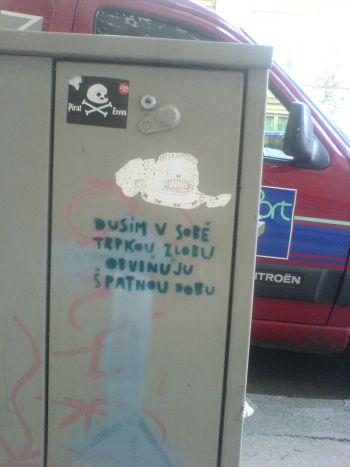 Pirat Zone
DUSÍM V SOBĚ
TRPKOU ZLOBU
OBVIŇUJU
ŠPATNOU DOBU
ort
ITROËN